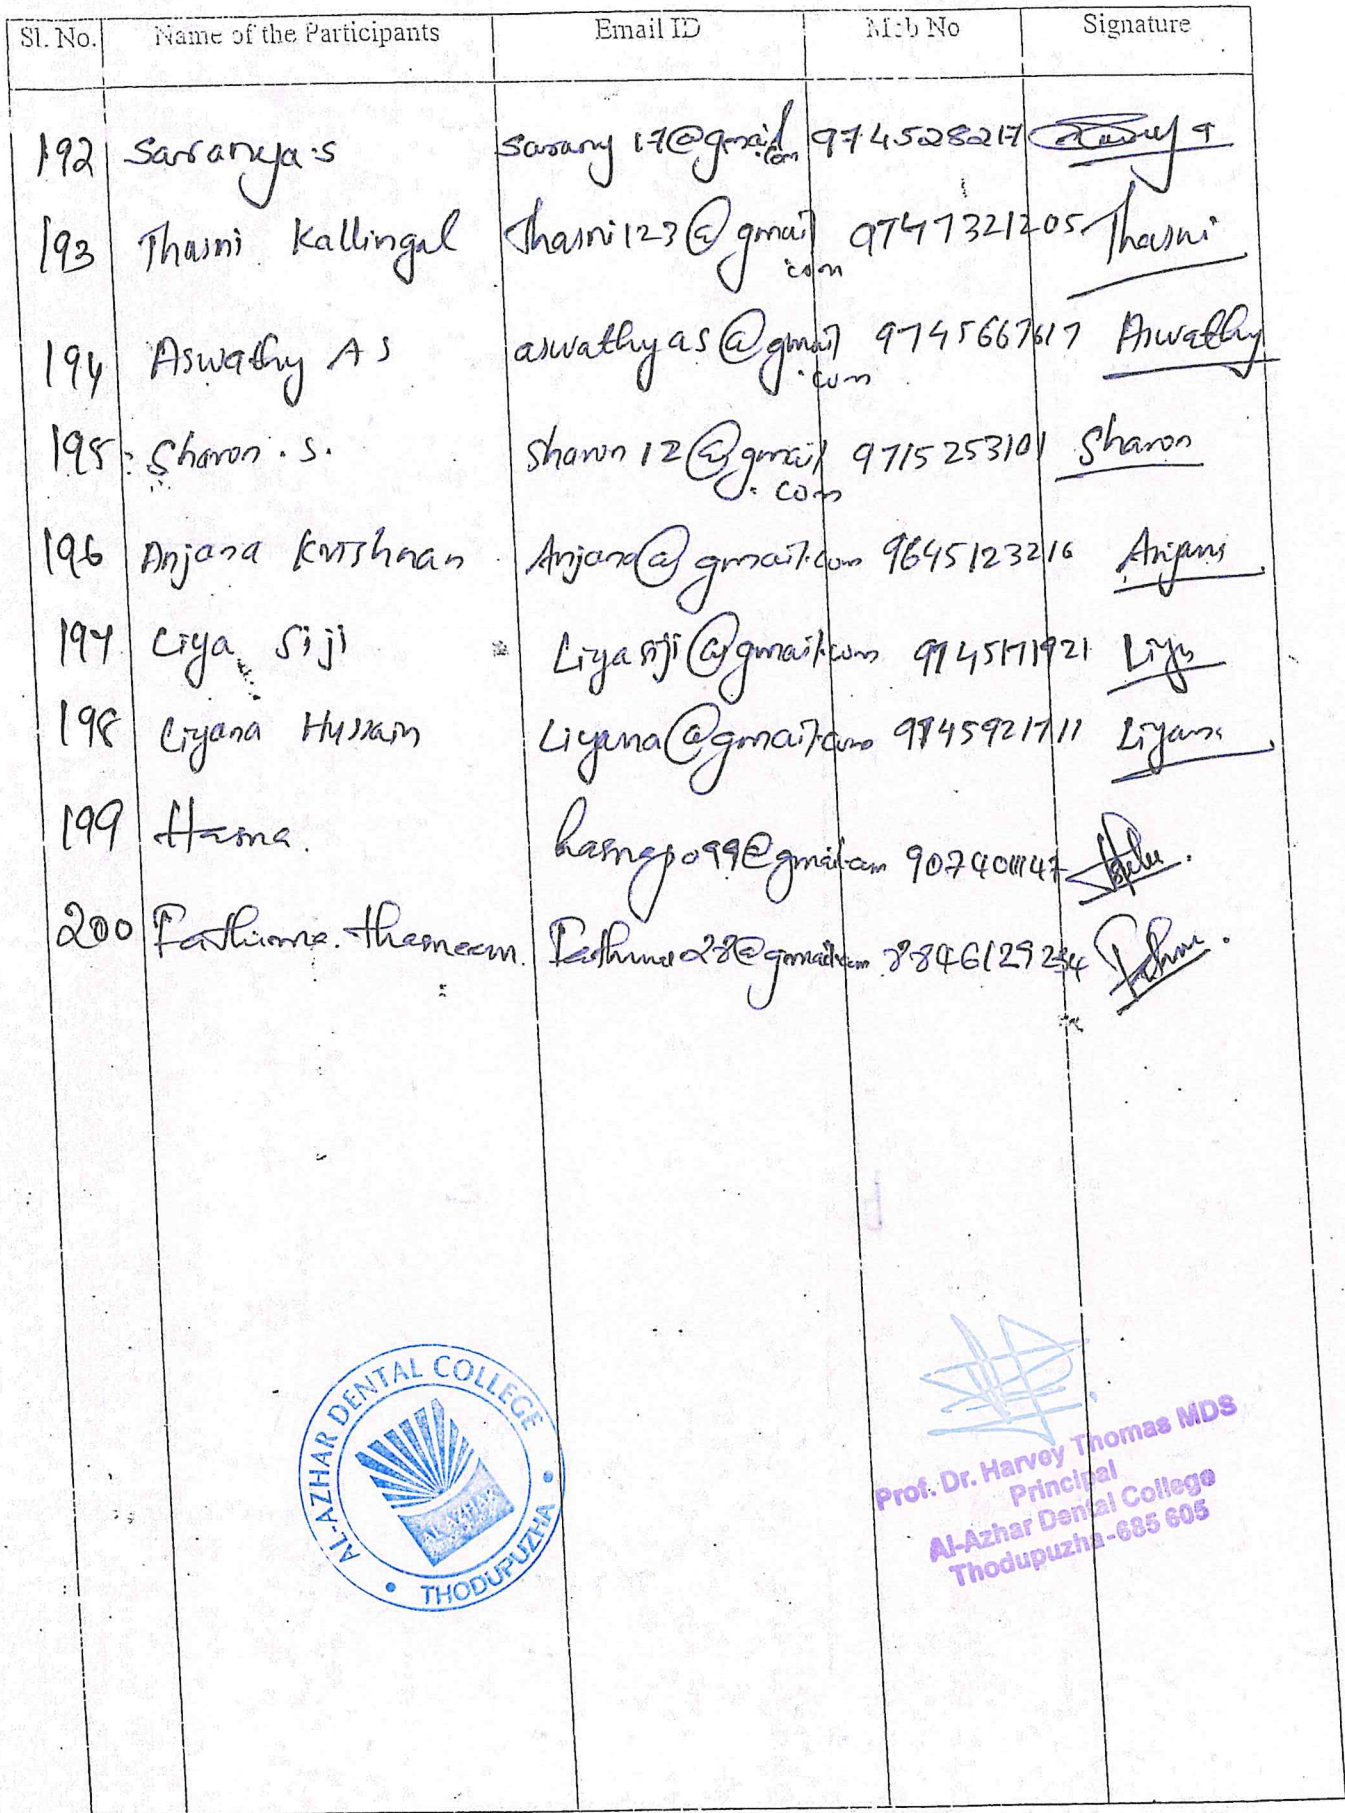 Sl. No. Name of the Participants Email ID Mob No Signature
192 Saranya.s Sarany 17@gmail.com 974528217
193 Thasni Kallingal Thasni123@gmail.com 9747321205 Thasni
194 Aswathy A S aswathyas@gmail.com 9745667617 Aswathy
195 Sharon.S. Sharon12@gmail.com 9715253101 Sharon
196 Anjana Krishnan Anjana@gmail.com 9645123216 Anjana
197 Liya Siji Liyasiji@gmail.com 9745171921 Liya
198 Liyana Hussain Liyana@gmail.com 9745921711 Liyana
199 Hasna.
200 Fathima. thasneem. 8846129234
AL-AZHAR DENTAL COLLEGE
AL AZHAR
• THODUPUZHA •
Prof. Dr. Harvey Thomas MDS
Principal
Al-Azhar Dental College
Thodupuzha-685 605